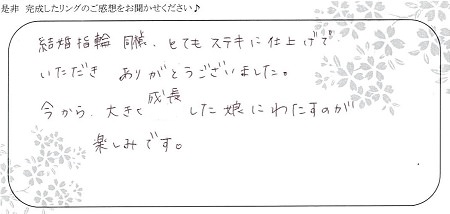 是非 完成したリングのご感想をお聞かせください♪
結婚指輪 同様、とてもステキに仕上げて
いただき ありがとうございました。
今から、大きく成長した娘にわたすのが
楽しみです。